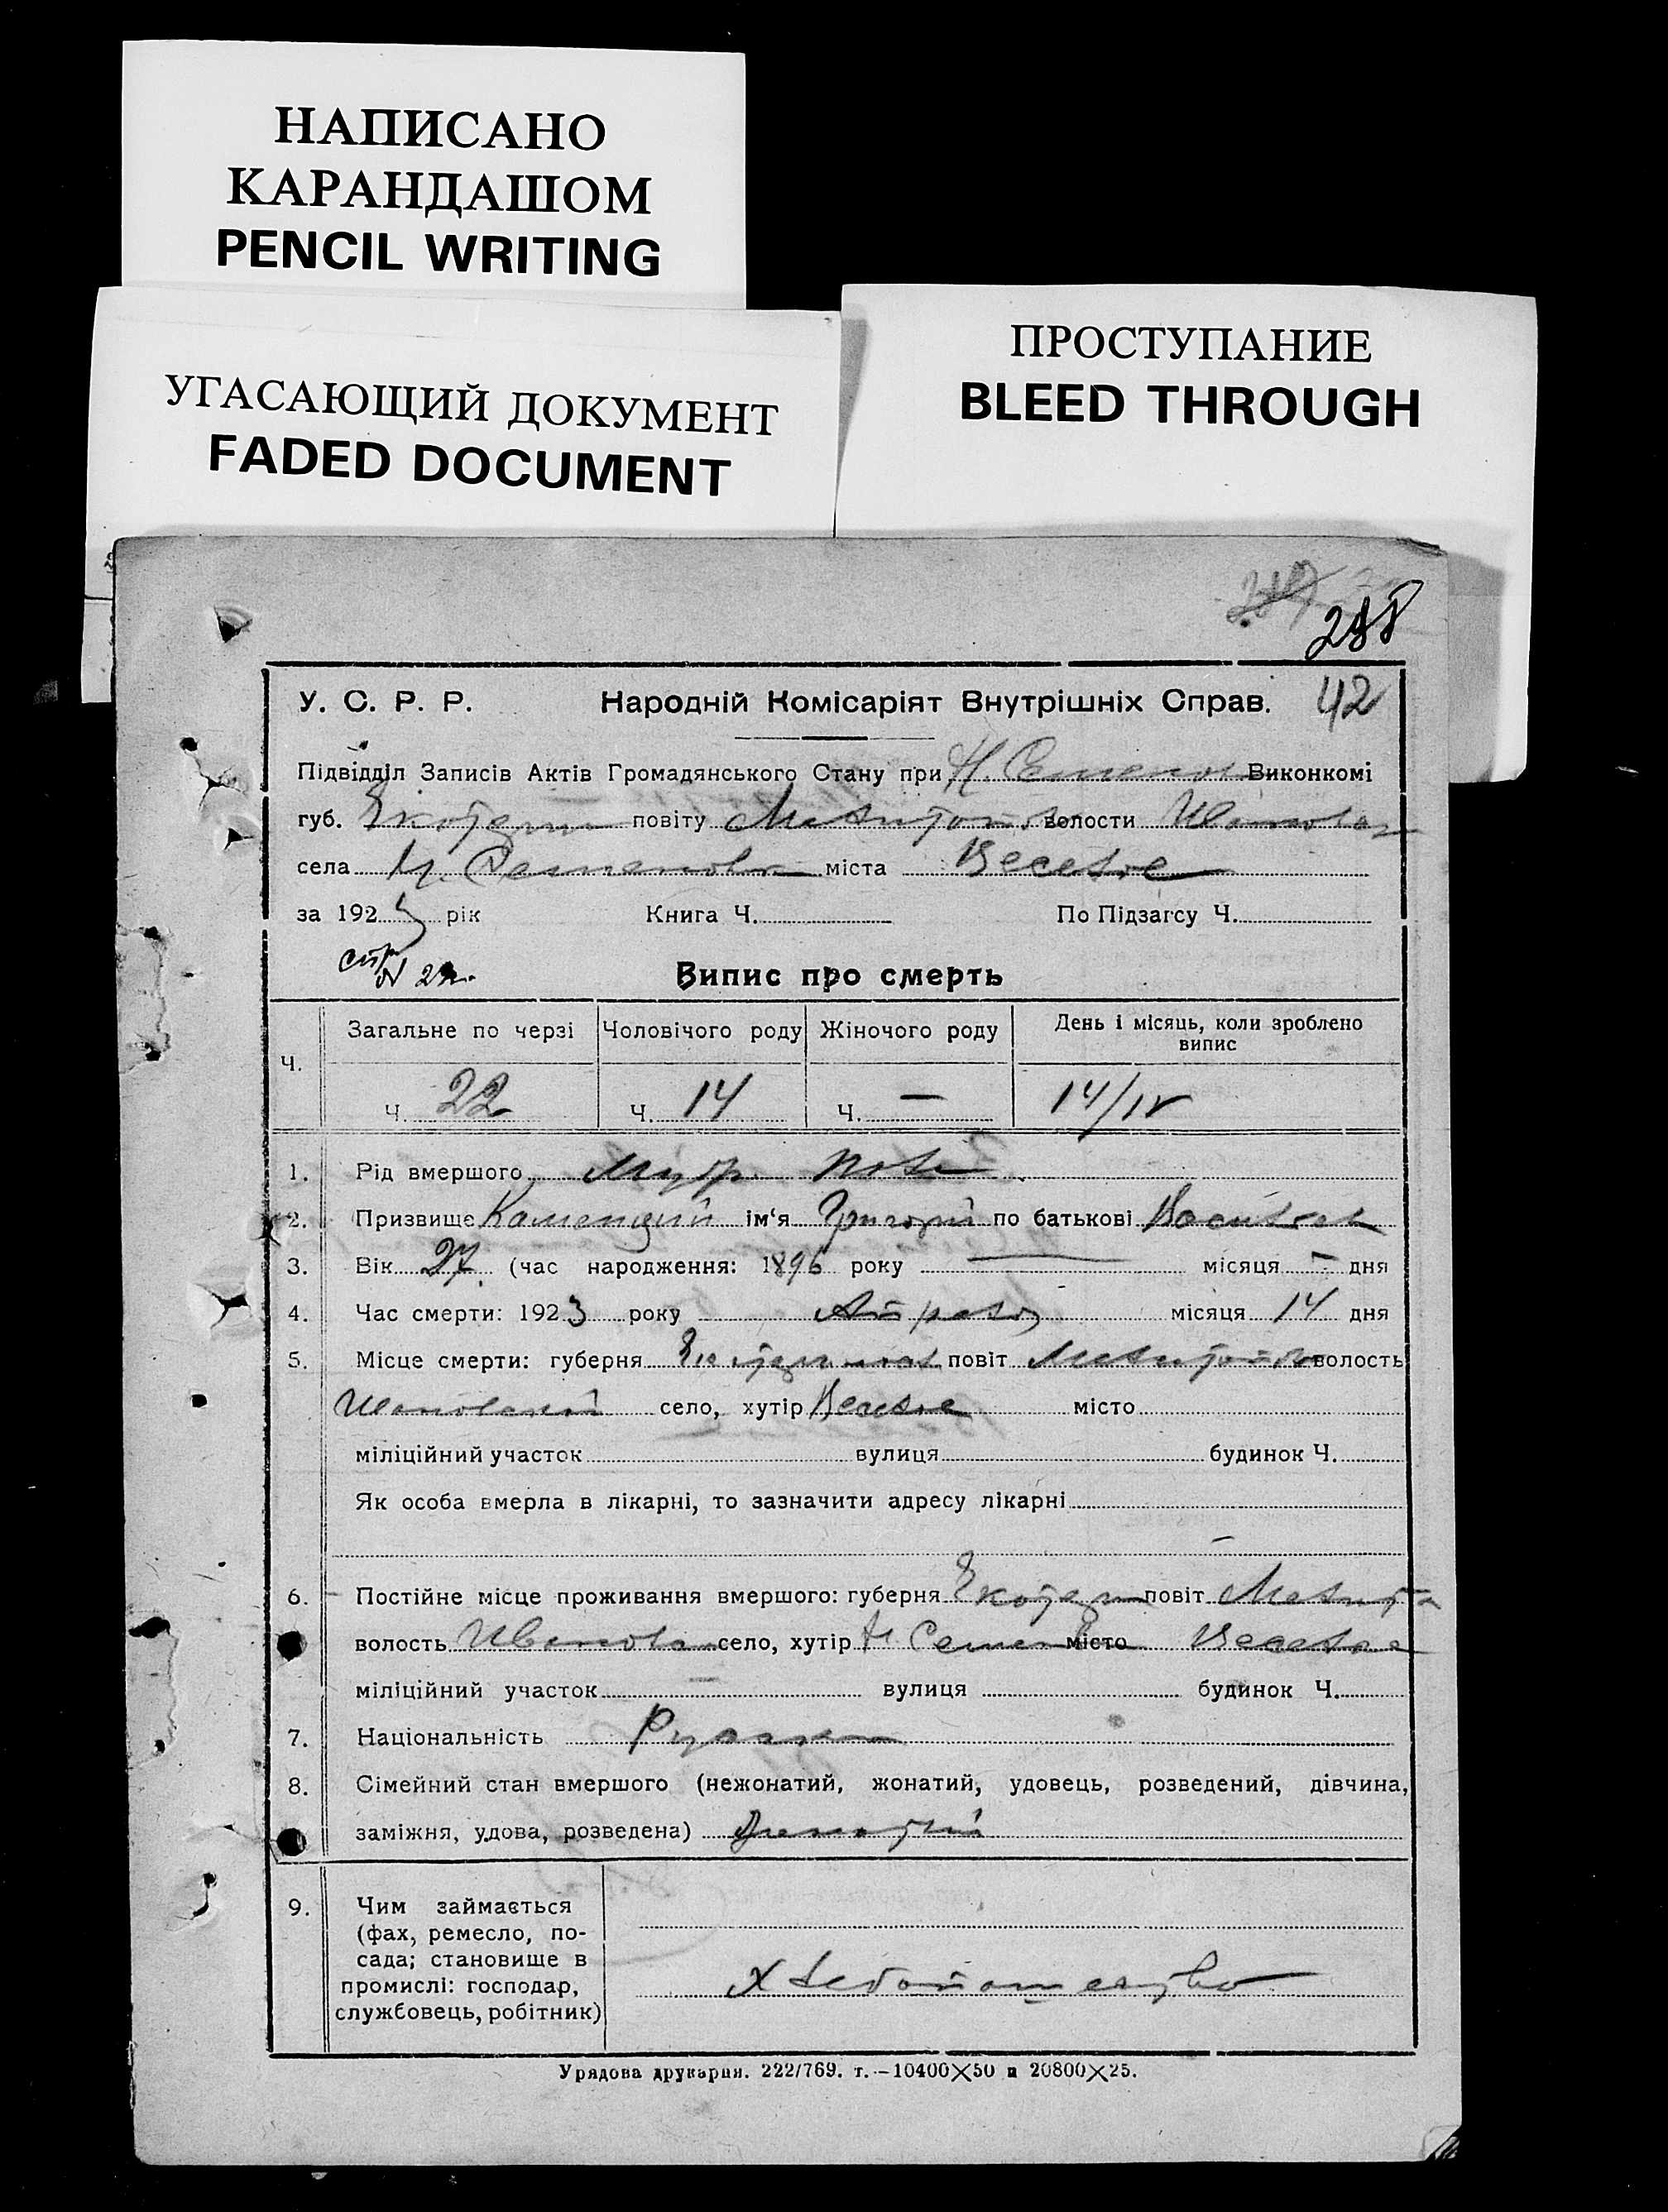 НАПИСАНО
КАРАНДАШОМ
PENCIL WRITING
УГАСАЮЩИЙ ДОКУМЕНТ
FADED DOCUMENT
ПРОСТУПАНИЕ
BLEED THROUGH
288
У. С. Р. Р. Народній Комісаріят Внутрішніх Справ. 42
Підвідділ Записів Актів Громадянського Стану при Н. Семенов Виконкомі
губ. Екатерин повіту Мелитоп. волости Ивановск
села Н. Семеновка міста Веселое
за 1923 рік Книга Ч. По Підзагсу Ч.
стр N 22.
Випис про смерть
Ч. Загальне по черзі Чоловічого роду Жіночого роду День і місяць, коли зроблено випис
Ч. 22 Ч. 14 Ч. — 14/IV
1. Рід вмершого пола
2. Призвище Каменцкий ім'я Григорий по батькові Васильев
3. Вік 27. (час народження: 1896 року — місяця - дня
4. Час смерти: 1923 року Апреля місяця 14 дня
5. Місце смерти: губерня повіт Мелитоп волость
Ивановской село, хутір Веселое місто
міліційний участок вулиця будинок Ч.
Як особа вмерла в лікарні, то зазначити адресу лікарні
6. Постійне місце проживання вмершого: губерня Екатерин повіт Мелитоп
волость Ивановск село, хутір Н. Семен місто Веселое
міліційний участок — вулиця будинок Ч.
7. Національність Русский
8. Сімейний стан вмершого (нежонатий, жонатий, удовець, розведений, дівчина,
заміжня, удова, розведена) Женатый
9. Чим займається
(фах, ремесло, по-
сада; становище в
промислі: господар,
службовець, робітник)
Хлебопашество
Урядова друкарня. 222/769. т.—10400×50 и 20800×25.